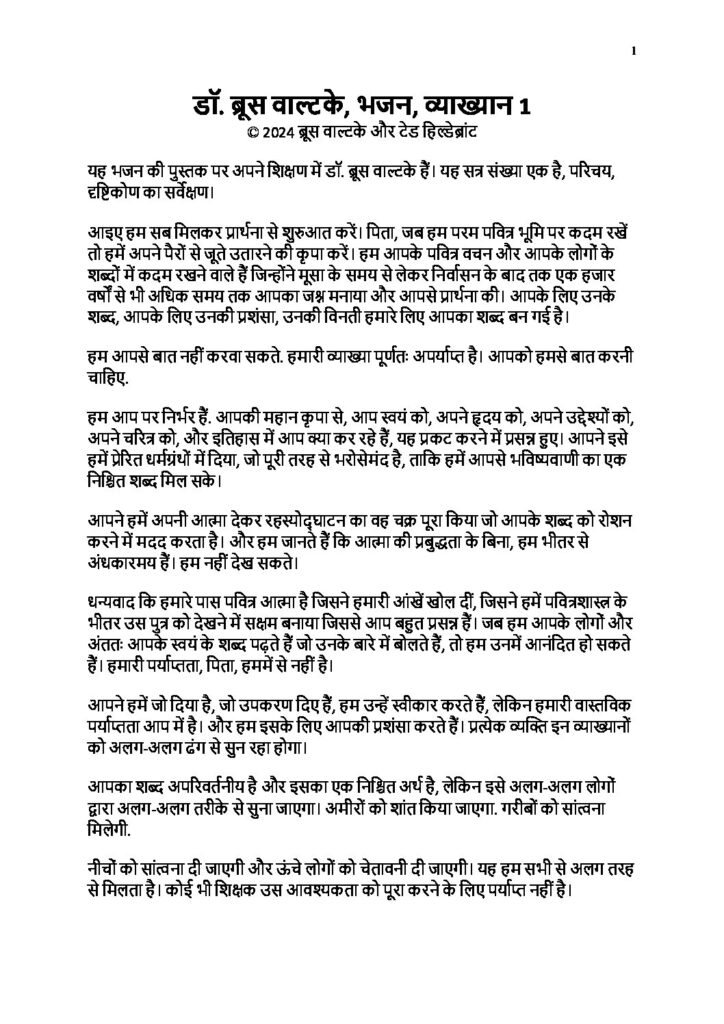 1
डॉ. ब्रूस वाल्टके, भजन, व्याख्यान 1
© 2024 ब्रूस वाल्टके और टेड हिल्डेब्रांट
यह भजन की पुस्तक पर अपने शिक्षण में डॉ. ब्रूस वाल्टके हैं। यह सत्र संख्या एक है, परिचय,
दृष्टिकोण का सर्वेक्षण।
आइए हम सब मिलकर प्रार्थना से शुरुआत करें। पिता, जब हम परम पवित्र भूमि पर कदम रखें
तो हमें अपने पैरों से जूते उतारने की कृपा करें। हम आपके पवित्र वचन और आपके लोगों के
शब्दों में कदम रखने वाले हैं जिन्होंने मूसा के समय से लेकर निर्वासन के बाद तक एक हजार
वर्षों से भी अधिक समय तक आपका जश्न मनाया और आपसे प्रार्थना की। आपके लिए उनके
शब्द, आपके लिए उनकी प्रशंसा, उनकी विनती हमारे लिए आपका शब्द बन गई है।
हम आपसे बात नहीं करवा सकते. हमारी व्याख्या पूर्णतः अपर्याप्त है। आपको हमसे बात करनी
चाहिए.
हम आप पर निर्भर हैं. आपकी महान कृपा से, आप स्वयं को, अपने हृदय को, अपने उद्देश्यों को,
अपने चरित्र को, और इतिहास में आप क्या कर रहे हैं, यह प्रकट करने में प्रसन्न हुए। आपने इसे
हमें प्रेरित धर्मग्रंथों में दिया, जो पूरी तरह से भरोसेमंद है, ताकि हमें आपसे भविष्यवाणी का एक
निश्चित शब्द मिल सके।
आपने हमें अपनी आत्मा देकर रहस्योद्घाटन का वह चक्र पूरा किया जो आपके शब्द को रोशन
करने में मदद करता है। और हम जानते हैं कि आत्मा की प्रबुद्धता के बिना, हम भीतर से
अंधकारमय हैं। हम नहीं देख सकते।
धन्यवाद कि हमारे पास पवित्र आत्मा है जिसने हमारी आंखें खोल दीं, जिसने हमें पवित्रशास्त्र के
भीतर उस पुत्र को देखने में सक्षम बनाया जिससे आप बहुत प्रसन्न हैं। जब हम आपके लोगों और
अंततः आपके स्वयं के शब्द पढ़ते हैं जो उनके बारे में बोलते हैं, तो हम उनमें आनंदित हो सकते
हैं। हमारी पर्याप्तता, पिता, हममें से नहीं है।
आपने हमें जो दिया है, जो उपकरण दिए हैं, हम उन्हें स्वीकार करते हैं, लेकिन हमारी वास्तविक
पर्याप्तता आप में है। और हम इसके लिए आपकी प्रशंसा करते हैं। प्रत्येक व्यक्ति इन व्याख्यानों
को अलग-अलग ढंग से सुन रहा होगा।
आपका शब्द अपरिवर्तनीय है और इसका एक निश्चित अर्थ है, लेकिन इसे अलग-अलग लोगों
द्वारा अलग-अलग तरीके से सुना जाएगा। अमीरों को शांत किया जाएगा. गरीबों को सांत्वना
मिलेगी.
नीचों को सांत्वना दी जाएगी और ऊंचे लोगों को चेतावनी दी जाएगी। यह हम सभी से अलग तरह
से मिलता है। कोई भी शिक्षक उस आवश्यकता को पूरा करने के लिए पर्याप्त नहीं है।